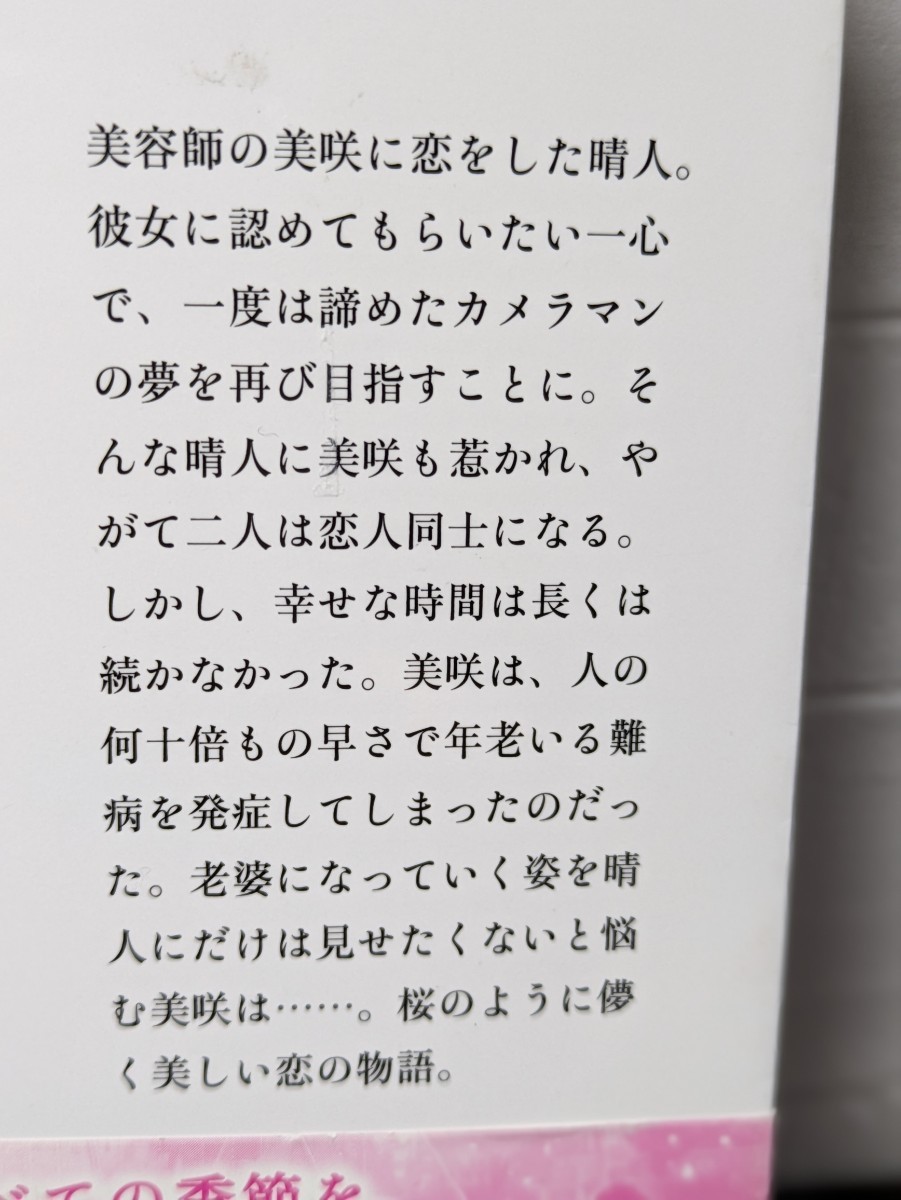 美容師の美咲に恋をした晴人。
彼女に認めてもらいたい一心
で、一度は諦めたカメラマン
の夢を再び目指すことに。そ
んな晴人に美咲も惹かれ、や
がて二人は恋人同士になる。
しかし、幸せな時間は長くは
続かなかった。美咲は、人の
何十倍もの早さで年老いる難
病を発症してしまったのだっ
た。老婆になっていく姿を晴
人にだけは見せたくないと悩
む美咲は……。桜のように儚
く美しい恋の物語。
ての季節を